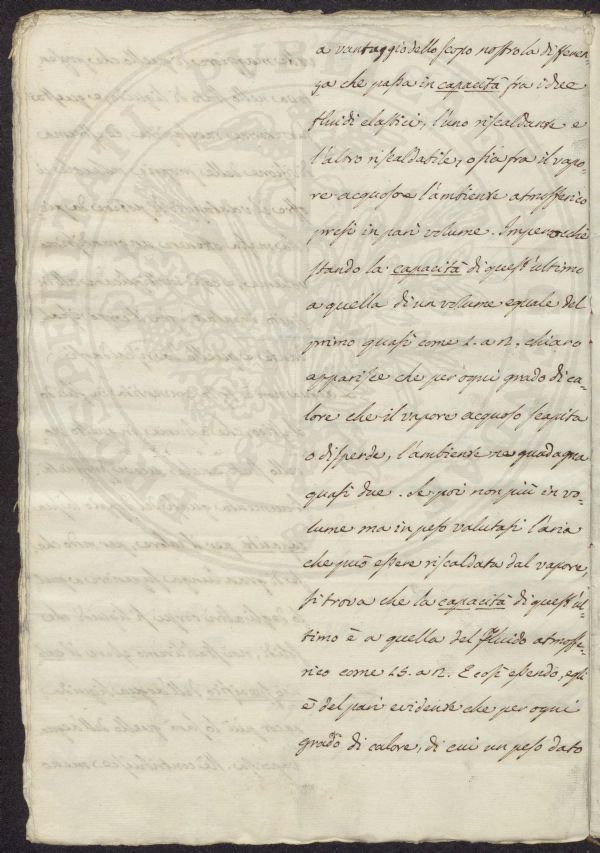 a vantaggio dello scopo nostro la differen-
za che passa in capacità fra i due
fluidi elastici, l'uno riscaldante e
l'altro riscaldabile, o sia fra il vapo-
re acquoso e l'ambiente atmosferico
presi in pari volume. Imperocchè
stando la capacità di quest'ultimo
a quella di un volume eguale del
primo quasi come 1. a 2. chiaro
apparisce che per ogni grado di ca-
lore che il vapore acquoso scapita
o disperde, l'ambiente ne guadagna
quasi due. Se poi non più in vo-
lume ma in peso valutasi l'aria
che può essere riscaldata dal vapore,
si trova che la capacità di quest'ul-
timo è a quella del fluido atmosfe-
rico come 25. a 12. E così essendo, egli
è del pari evidente che per ogni
grado di calore, di cui un peso dato